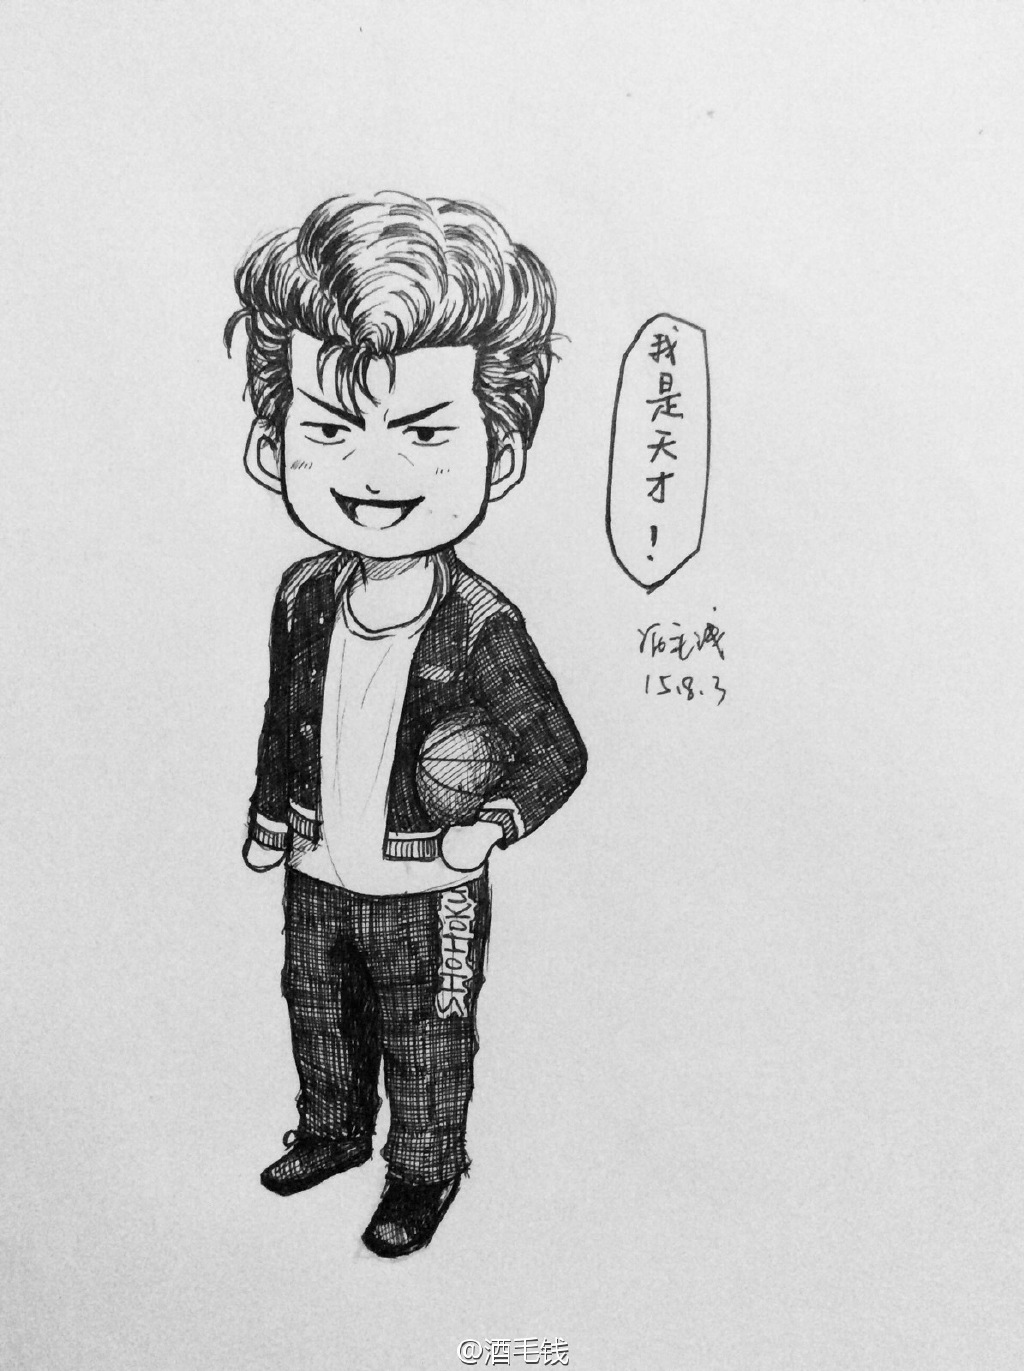 我是天才！
酒毛钱
15.8.3
SHOHOKU
@酒毛钱